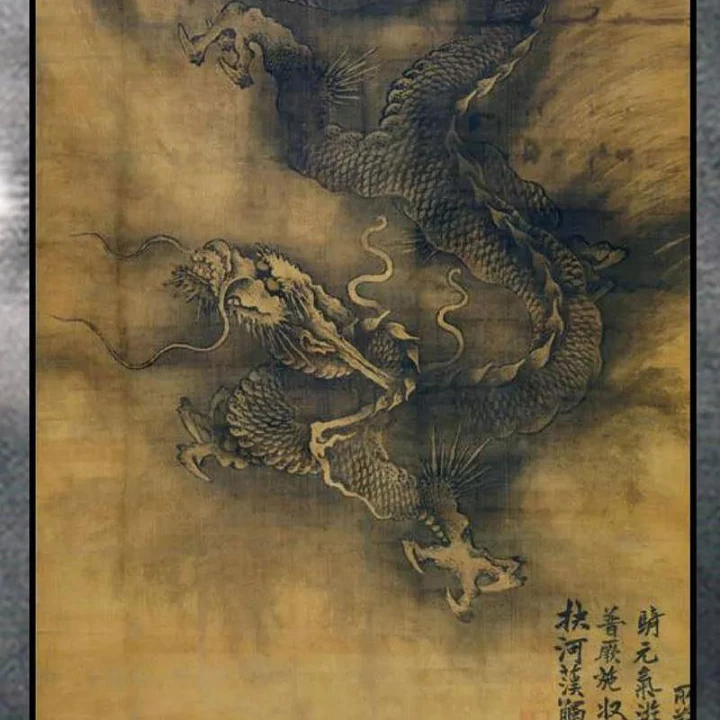 扶河漢觸
普厥施收
騎元氣游
所